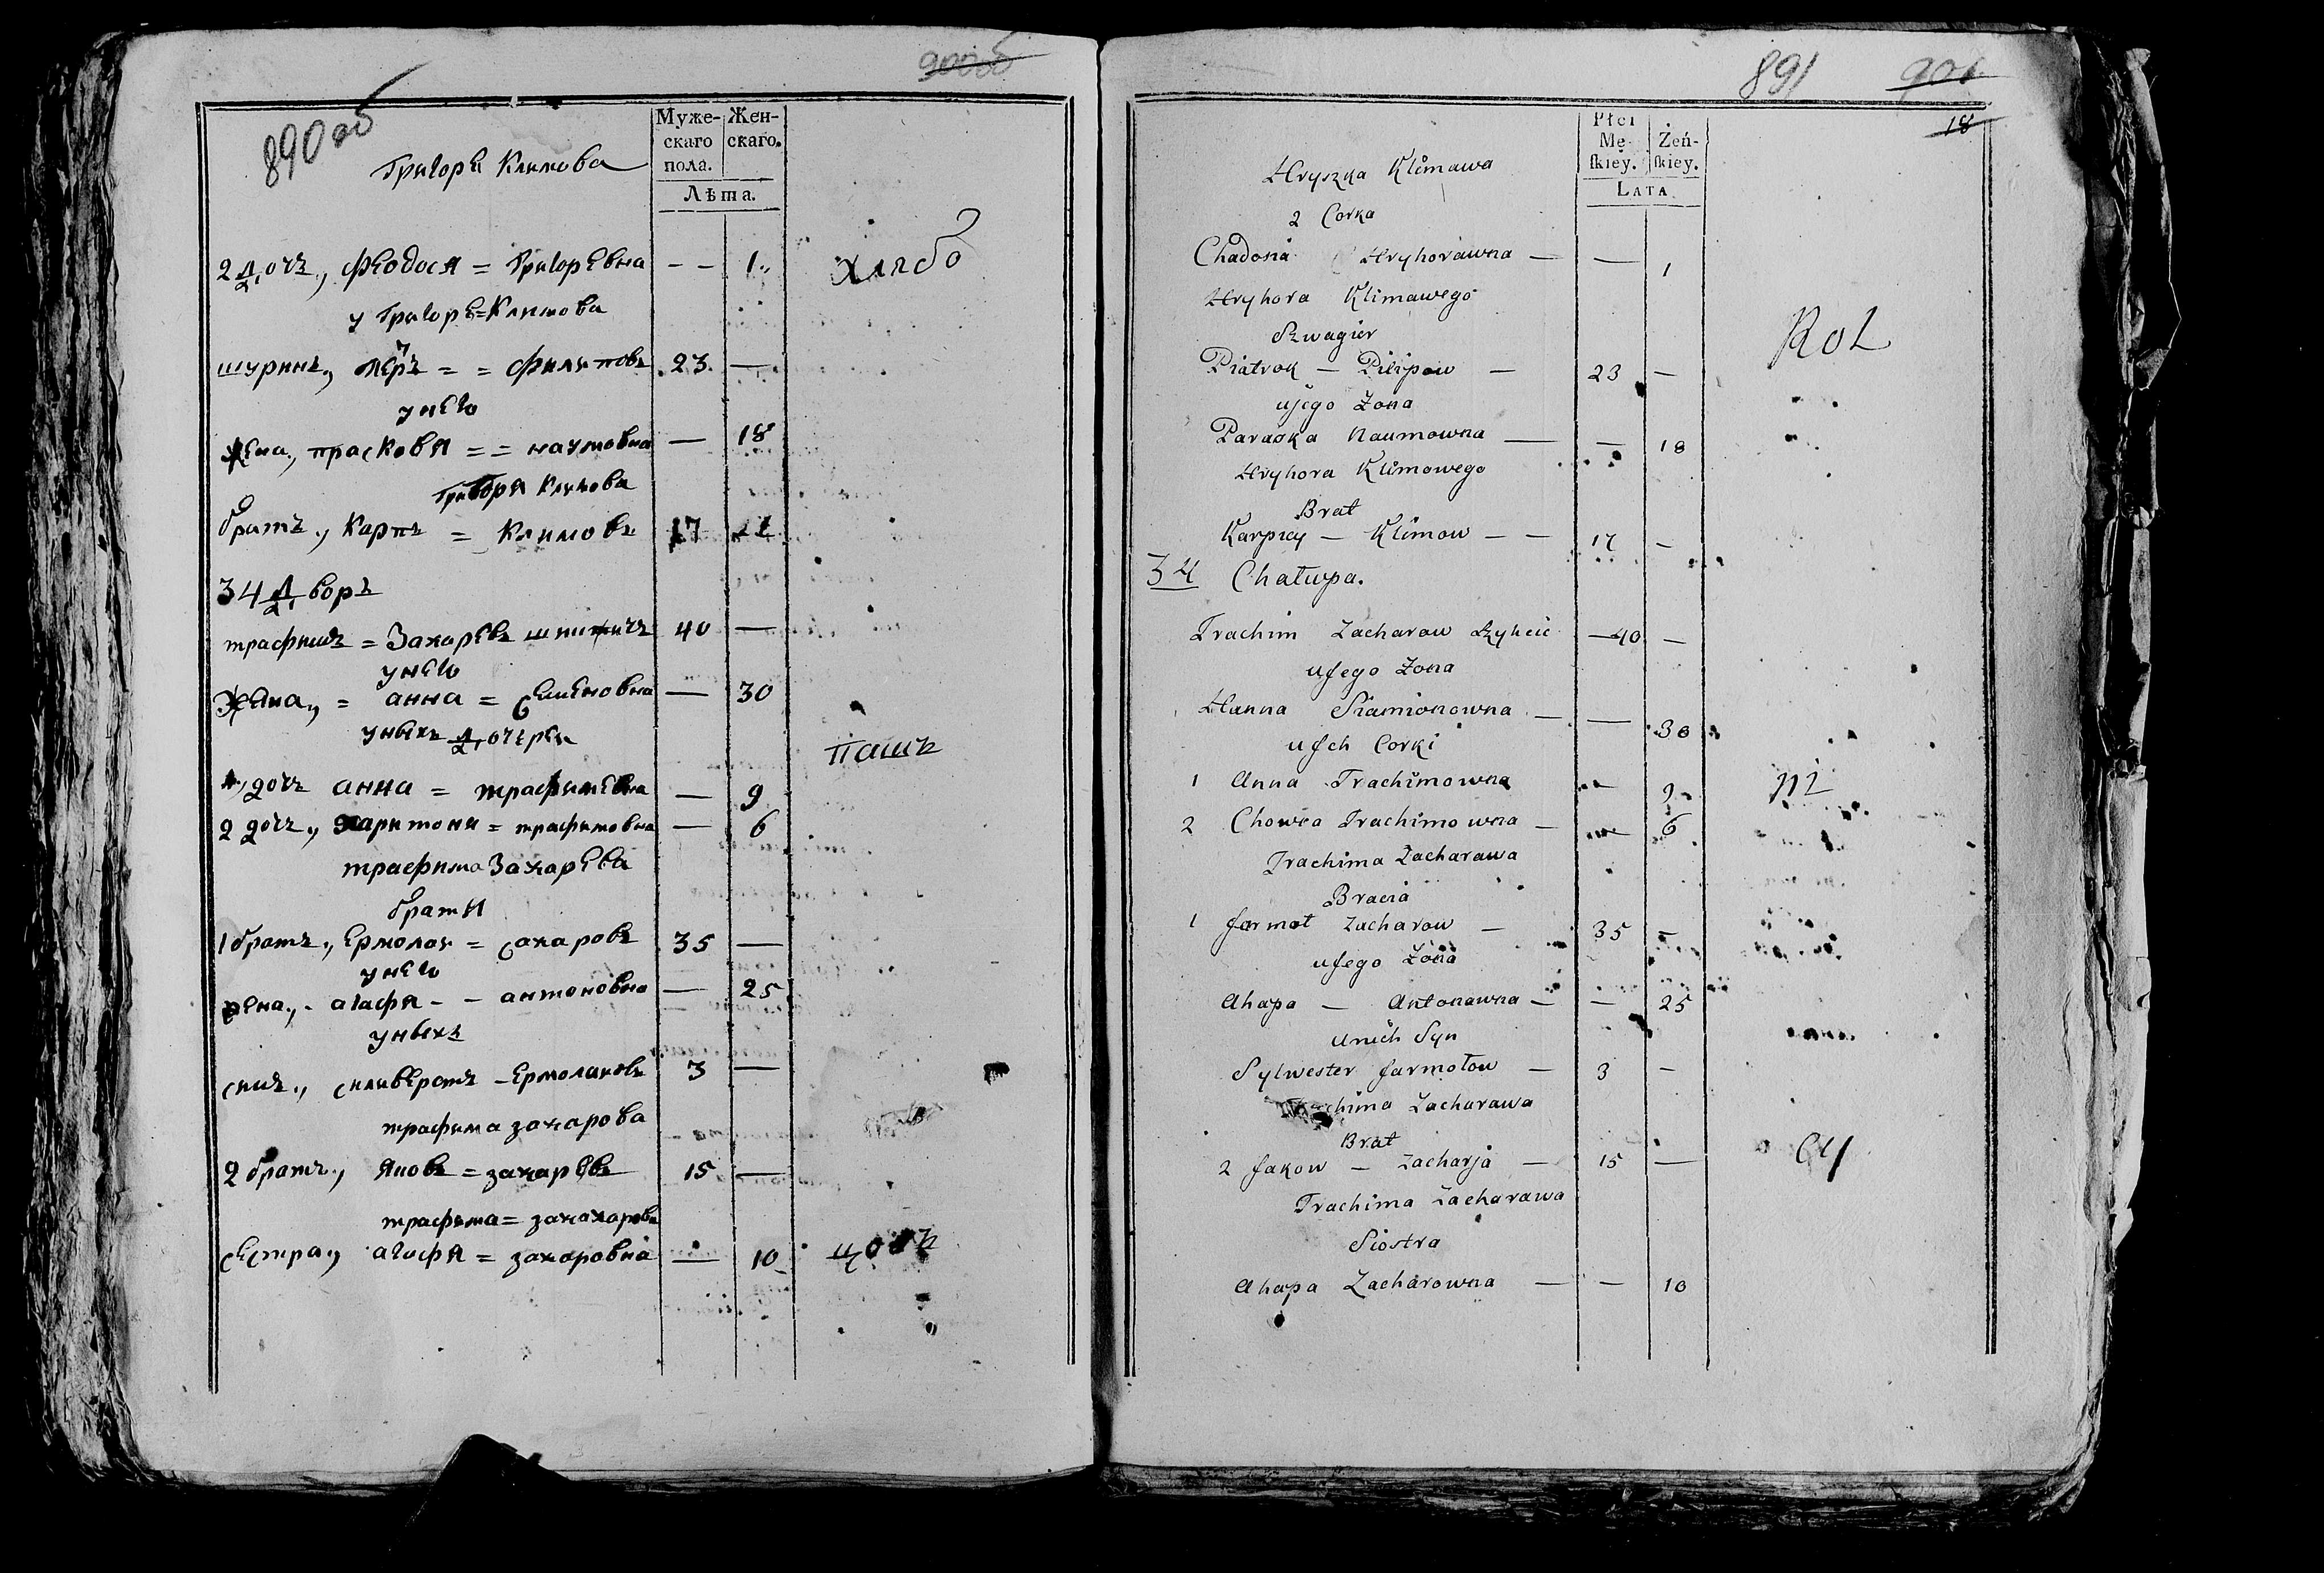 900об
890об
Муже-
скаго
пола.
Жен-
скаго.
Лѣта.
Григорѣя Климова
2 дочь, феодося = Григоревна — — 1
хлѣбо
у Григорѣ = Климова
шуринъ, петръ = = филиповъ 23 —
у него
жена, прасковя = = наумовна — 18
Григоря Климова
братъ, Карпъ = Климовъ 17
34 дворъ
трафимъ = Захаревъ 40 —
у него
жена, = анна = семеновна — 30
у ныхъ дочери
пашъ
1, дочь анна = трафимевна — 9
2 дочь, харитони = трафимовна — 6
трафима Захарева
братя
1 братъ, Ермолаи = сахаровъ 35 —
у него
жена, - агафя - - антоновна — 25
у ныхъ
синъ, силивератъ - Ермолаиовъ 3 —
трафима захарова
2 братъ, яковъ = захаревъ 15 —
трафима = захахарова
сестра, агафя = захаровна — 10
891 901
18
Płci
Mę-
skiey.
Żeń-
skiey.
Lata
Hryszka Klimawa
2 Corka
Chadosia Hryhorawna — — 1
Hryhora Klimawego
Szwagier
Rol
Piatrok — Pilipow — 23 —
ujego Zona
Paraska Naumowna — — 18
Hryhora Klimowego
Brat
Karpiey — Klimow — — 17 —
34 Chatupa.
Trachim Zacharow — 40 —
ujego Zona
Hanna Siamionowna — — 30
ujch Corki
1 Anna Trachimowna — 9
ni
2 Chowra Trachimowna — — 6
Trachima Zacharawa
Bracia
1 Jarmot Zacharow — 35 —
ujego Zona
Ahapa — Antonawna — — 25
unich Syn
Sylwester Jarmotow — 3 —
Trachima Zacharawa
Brat
2 Jakow — Zacharja — 15 —
cy
Trachima Zacharawa
Siostra
Ahapa Zacharowna — — 10